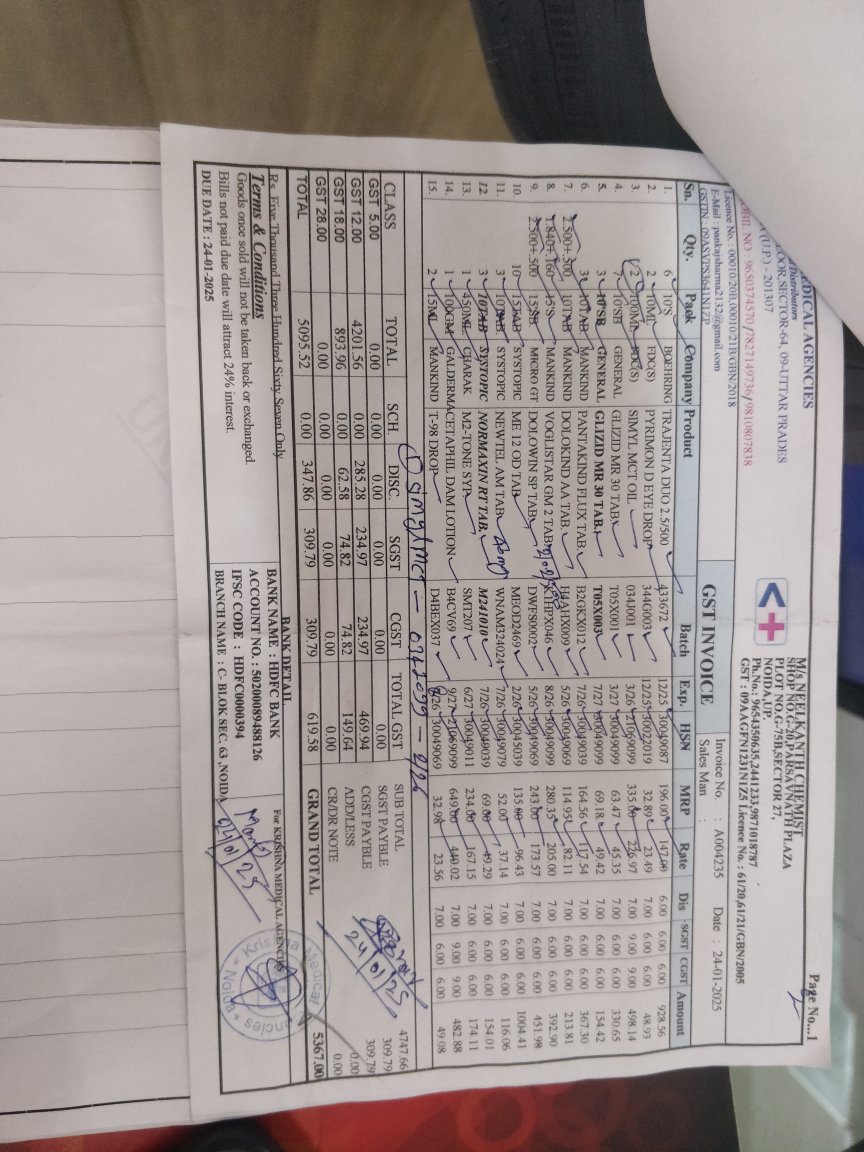 Page No...1
EDICAL AGENCIES
Distributors
LOOR,SECTOR-64, 09-UTTAR PRADES
(U.P.) - 201307
BIL NO : 9650374570/7827149736/9810807838
Licence No. : 00010/20B,00010/21B/GBN/2018
E-Mail : pankajsharma2132@gmail.com
GSTIN : 09ASVPS3641N1ZP
M/s NEELKANTH CHEMIST
SHOP NO.G-20,PARSAVNATH PLAZA
PLOT NO.G-75B,SECTOR 27,
NOIDA,UP.
Ph.No.: 9654350635,2441233,9871018787
GST : 09AAGFN1231N1Z5 Licence No. : 61/20,61/21/GBN/2005
GST INVOICE
Invoice No. : A004235 Date : 24-01-2025
Sales Man :
Sn. Qty. Pack Company Product Batch Exp. HSN MRP Rate Dis SGST CGST Amount
1. 6 10'S BOEHRING TRAJENTA DUO 2.5/500 433672 12/25 30049087 196.00 147.00 6.00 6.00 6.00 928.56
2. 2 10ML FDC(S) PYRIMON D EYE DROP 344G003 12/25 30022019 32.89 23.49 7.00 6.00 6.00 48.93
3. 2 100ML FDC(S) SIMYL MCT OIL 034J001 3/26 21069099 335.00 226.97 7.00 9.00 9.00 498.14
4. 7 10'SB GENERAL GLIZID MR 30 TAB. T05X001 3/27 30049099 63.47 45.35 7.00 6.00 6.00 330.65
5. 3 10'SB GENERAL GLIZID MR 30 TAB. T05X003 7/27 30049099 69.18 49.42 7.00 6.00 6.00 154.42
6. 3 10TAB MANKIND PANTAKIND FLUX TAB B2GKX012 7/26 30049039 164.56 117.54 7.00 6.00 6.00 367.30
7. 2.500+.500 10TAB MANKIND DOLOKIND AA TAB. H4AHX009 5/26 30049069 114.95 82.11 7.00 6.00 6.00 213.81
8. 1.840+.160 15'S MANKIND VOGLISTAR GM 2 TAB K1HPX046 8/26 30049099 280.35 205.00 7.00 6.00 6.00 392.90
9. 2.500+.500 15'SB MICRO GT DOLOWIN SP TAB DWFS0002 5/26 30049069 243.00 173.57 7.00 6.00 6.00 451.98
10. 10 15TAB SYSTOPIC ME 12 OD TAB MEOD2469 2/26 30045039 135.00 96.43 7.00 6.00 6.00 1004.41
11. 3 10TAB SYSTOPIC NEWTEL AM TAB WNAM324024 7/26 30049079 52.00 37.14 7.00 6.00 6.00 116.06
12. 3 10TAB SYSTOPIC NORMAXIN RT TAB. M241010 7/26 30049039 69.00 49.29 7.00 6.00 6.00 154.01
13. 1 450ML CHARAK M2-TONE SYP SMT207 6/27 30049011 234.00 167.15 7.00 6.00 6.00 174.11
14. 1 100GM GALDERMA CETAPHIL DAM LOTION B4CV69 9/27 21069099 649.00 440.02 7.00 9.00 9.00 482.88
15. 2 15ML MANKIND T-98 DROP D4BEX037 8/26 30049069 32.98 23.56 7.00 6.00 6.00 49.08
CLASS TOTAL SCH. DISC. SGST CGST TOTAL GST
GST 5.00 0.00 0.00 0.00 0.00 0.00 0.00
GST 12.00 4201.56 0.00 285.28 234.97 234.97 469.94
GST 18.00 893.96 0.00 62.58 74.82 74.82 149.64
GST 28.00 0.00 0.00 0.00 0.00 0.00 0.00
TOTAL 5095.52 0.00 347.86 309.79 309.79 619.58
SUB TOTAL 4747.66
SGST PAYBLE 309.79
CGST PAYBLE 309.79
ADD/LESS 0.00
CR/DR NOTE 0.00
GRAND TOTAL 5367.00
24/01/25
Rs. Five Thousand Three Hundred Sixty Seven Only
Terms & Conditions
Goods once sold will not be taken back or exchanged.
Bills not paid due date will attract 24% interest.
DUE DATE : 24-01-2025
BANK DETAIL
BANK NAME : HDFC BANK
ACCOUNT NO. : 50200089488126
IFSC CODE : HDFC0000394
BRANCH NAME : C- BLOK SEC. 63 ,NOIDA
For KRISHNA MEDICAL AGENCIES
24/01/25
Krishna Medical Agencies * Noida *